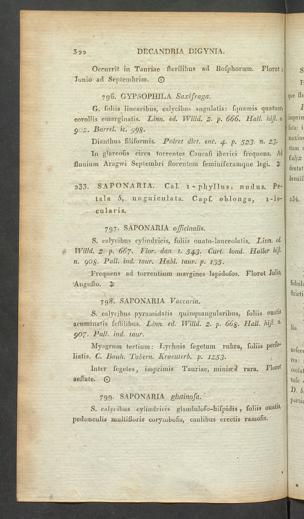 322 DECANDRIA DIGYNIA.
Occurrit in Tauriae sterilibus ad Bosphorum. Floret
Junio ad Septembrim. ☉
796. GYPSOPHILA Saxifraga.
G. foliis linearibus, calycibus angulatis: squamis quatuor,
corollis emarginatis. Linn. ed. Willd. 2. p. 666. Hall. hist. n
902. Barrel. ic. 998.
Dianthus filiformis. Poiret dict. enc. 4. p. 523. n. 23.
In glareosis circa torrentes Caucasi iberici frequens. Ad
fluvium Aragwi Septembri florentem seminiferamque legi. ♃
233. SAPONARIA. Cal. 1-phyllus. nudus. Pe-
tala 5, unguiculata. Capf. oblonga, 1-lo-
cularis.
797. SAPONARIA officinalis.
S. calycibus cylindricis, foliis ouato-lanceolatis. Linn. ed
Willd. 2. p. 667. Flor. dan. t. 543. Curt. lond. Haller hist.
n. 908. Pall. ind. taur. Habl. taur. p. 133.
Frequens ad torrentium margines lapidosos. Floret Julio,
Augusto. ♃
798. SAPONARIA Vaccaria.
S. calycibus pyramidatis quinquangularibus, foliis ouatis
acuminatis sessilibus. Linn. ed. Willd. 2. p. 668. Hall. hist. n
907. Pall. ind. taur.
Myagrum tertium: Lychnis segetum rubra, foliis perfo-
liatis. C. Bauh. Tabern. Kraeuterb. p. 1253.
Inter segetes, imprimis Tauriae, minime rara. Floret
aestate. ☉
799. SAPONARIA glutinosa.
S. calycibus cylindricis glanduloso-hispidis, foliis ouatis,
pedunculis multifloris corymbosis, caulibus erectis ramosis.